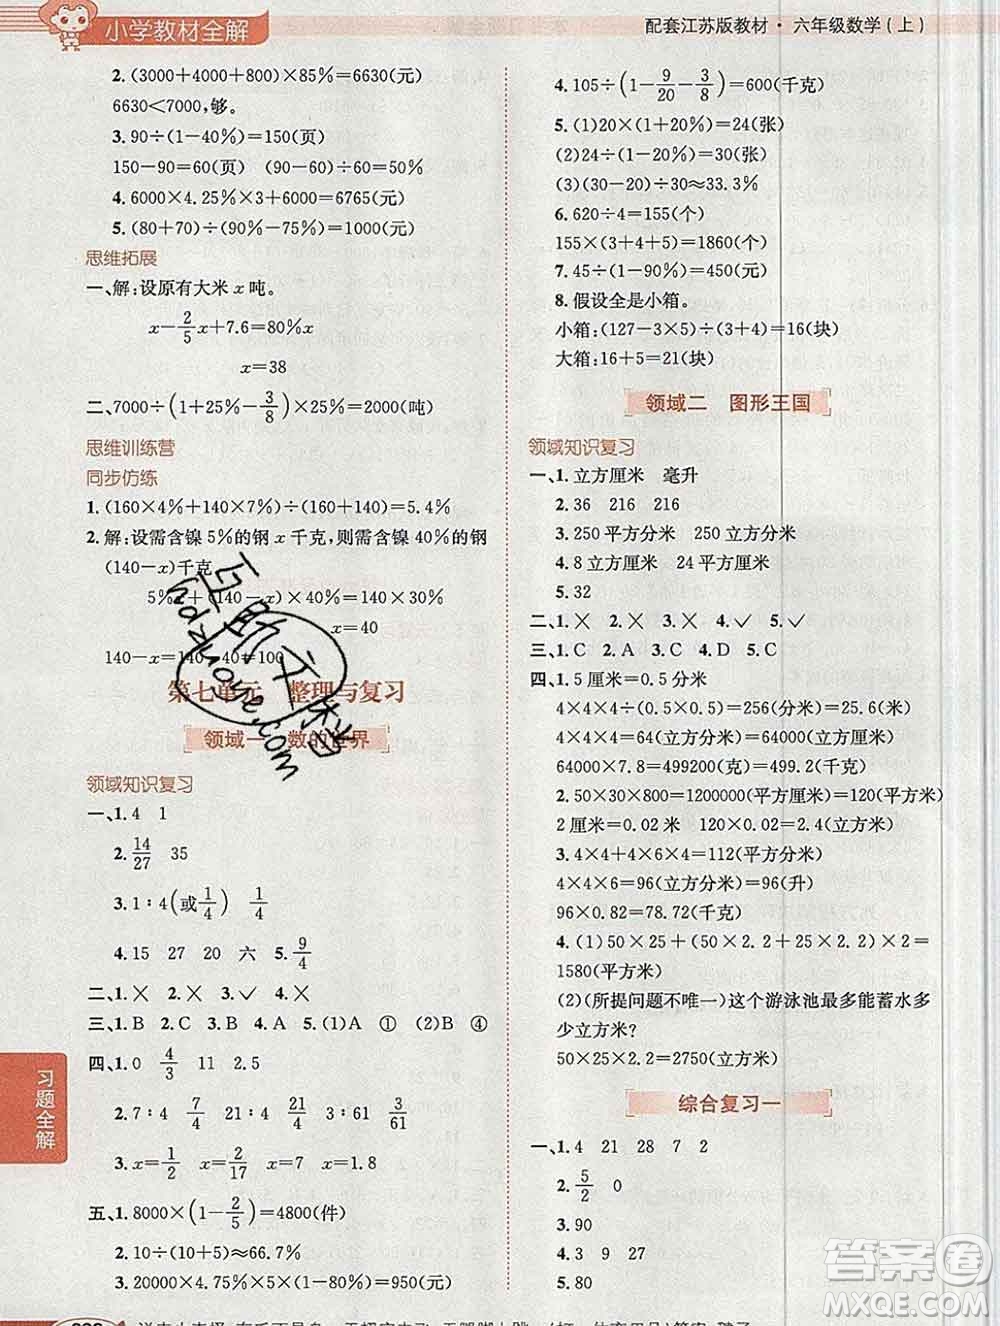 小学教材全解
配套江苏版教材·六年级数学(上)
2. (3000+4000+800)×85%=6630(元)
6630<7000,够。
3. 90÷(1-40%)=150(页)
150-90=60(页) (90-60)÷60=50%
4. 6000×4.25%×3+6000=6765(元)
5. (80+70)÷(90%-75%)=1000(元)
思维拓展
一、解:设原有大米 x 吨。
x-2/5x+7.6=80%x
x=38
二、7000÷(1+25%-3/8)×25%=2000(吨)
思维训练营
同步仿练
1. (160×4%+140×7%)÷(160+140)=5.4%
2. 解:设需含镍 5%的钢 x 千克,则需含镍 40%的钢
(140-x)千克
5%x+(140-x)×40%=140×30%
x=40
140-x=140-40=100
第七单元 整理与复习
领域一 数的世界
领域知识复习
一、1. 4 1
2. 14/27 35
3. 1∶4(或1/4) 1/4
4. 15 27 20 六 5. 9/4
二、1. × 2. × 3. ✓ 4. × 5. ×
三、1. B 2. C 3. B 4. A 5. (1)A ① (2)B ④
四、1. 0 4/3 11 2.5
2. 7∶4 7/4 21∶4 21/4 3∶61 3/61
3. x=1/2 x=2/17 x=7 x=1.8
五、1. 8000×(1-2/5)=4800(件)
2. 10÷(10+5)≈66.7%
3. 20000×4.75%×1=950(元)
4. 105÷(1-9/20-3/8)=600(千克)
5. (1)20×(1+20%)=24(张)
(2)24÷(1-20%)=30(张)
(3)(30-20)÷30≈33.3%
6. 620÷4=155(个)
155×(3+4+5)=1860(个)
7. 45÷(1-90%)=450(元)
8. 假设全是小箱。
小箱:(127-3×5)÷(3+4)=16(块)
大箱:16+5=21(块)
领域二 图形王国
领域知识复习
一、1. 立方厘米 毫升
2. 36 216 216
3. 250 平方分米 250 立方分米
4. 8 立方厘米 24 平方厘米
5. 32
二、1. × 2. × 3. × 4. ✓ 5. ✓
三、1. C 2. A 3. C 4. D 5. C
四、1. 5 厘米=0.5 分米
4×4×4÷(0.5×0.5)=256(分米)=25.6(米)
4×4×4=64(立方分米)=64000(立方厘米)
64000×7.8=499200(克)=499.2(千克)
2. 50×30×800=1200000(平方厘米)=120(平方米)
2 厘米=0.02 米 120×0.02=2.4(立方米)
3. 4×4+4×6×4=112(平方分米)
4×4×6=96(立方分米)=96(升)
96×0.82=78.72(千克)
4. (1)50×25+(50×2.2+25×2.2)×2=
1580(平方米)
(2)(所提问题不唯一)这个游泳池最多能蓄水多
少立方米?
50×25×2.2=2750(立方米)
综合复习一
一、1. 4 21 28 7 2
2. 5/2 0
3. 90
4. 3 9 27
5. 80
习题全解
互助文档
hdzuoye.com
答案圈
MXQE.COM